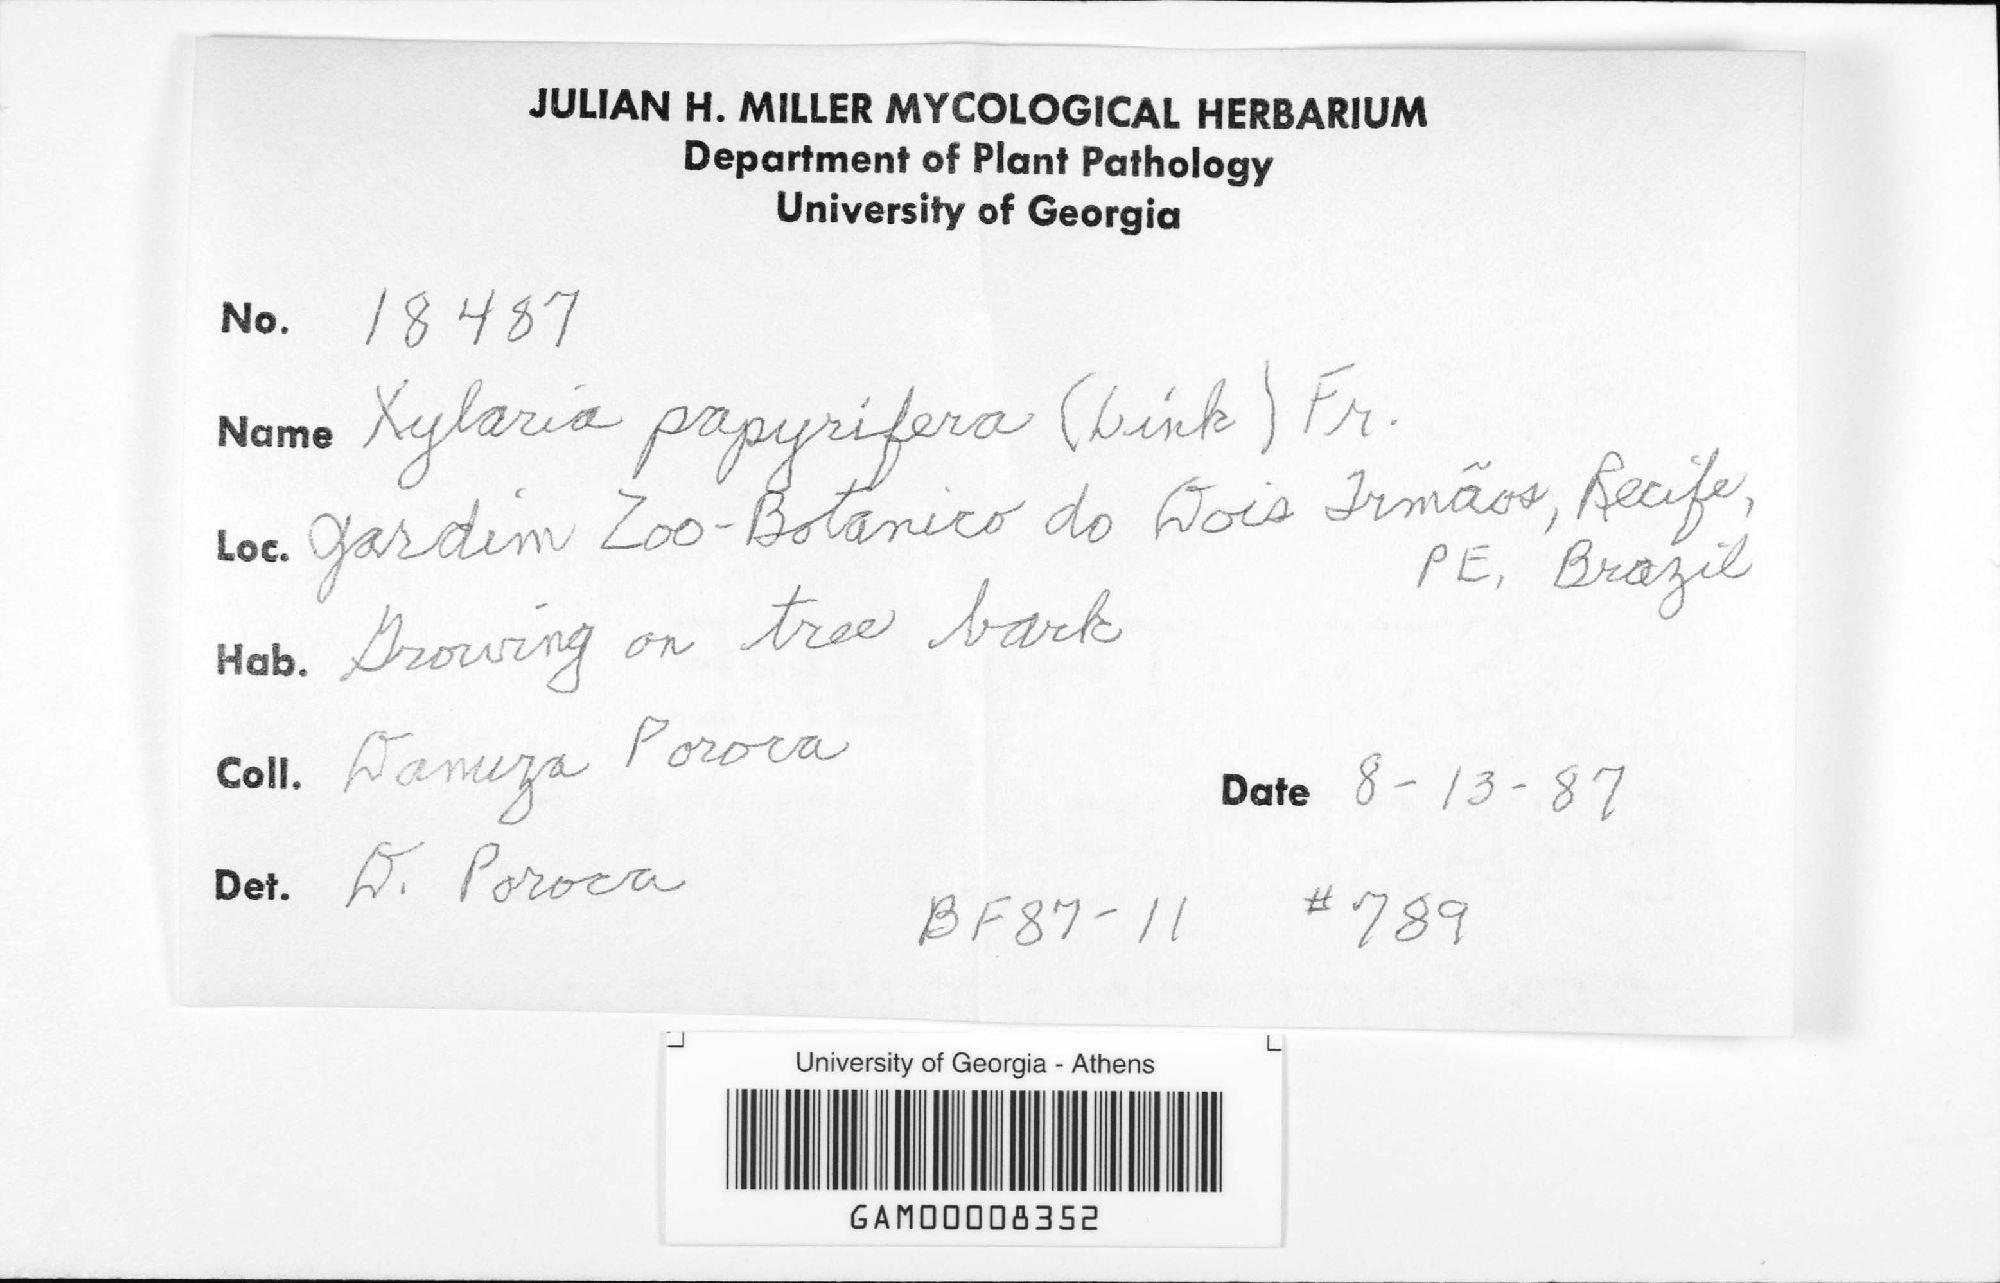 JULIAN H. MILLER MYCOLOGICAL HERBARIUM
Department of Plant Pathology
University of Georgia
No. 18487
Name Xylaria papyrifera (Link) Fr.
Loc. Jardim Zoo-Botanico do Dois Irmãos, Recife,
PE, Brazil
Hab. Growing on tree bark
Coll. Danuza Poroca
Date 8-13-87
Det. D. Poroca
BF87-11 #789
University of Georgia - Athens
GAM00008352